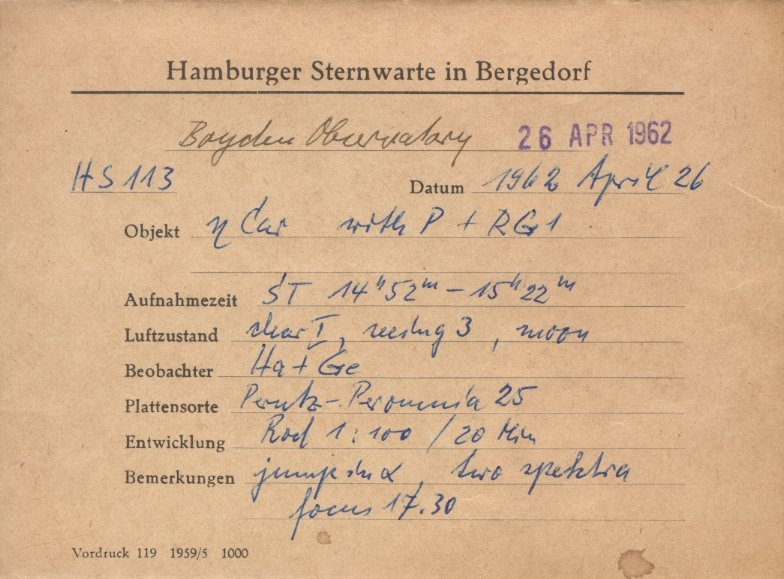 Hamburger Sternwarte in Bergedorf
Boyden Observatory 26 APR 1962
HS 113 Datum 1962 April 26
Objekt η Car with P + RG1
Aufnahmezeit ST 14ʰ52ᵐ – 15ʰ22ᵐ
Luftzustand clear I, seeing 3, moon
Beobachter Ha + Ge
Plattensorte Perutz-Peromnia 25
Entwicklung Rod 1:100 / 20 Min
Bemerkungen jump in α, two spektra
focus 17.30
Vordruck 119 1959/5 1000